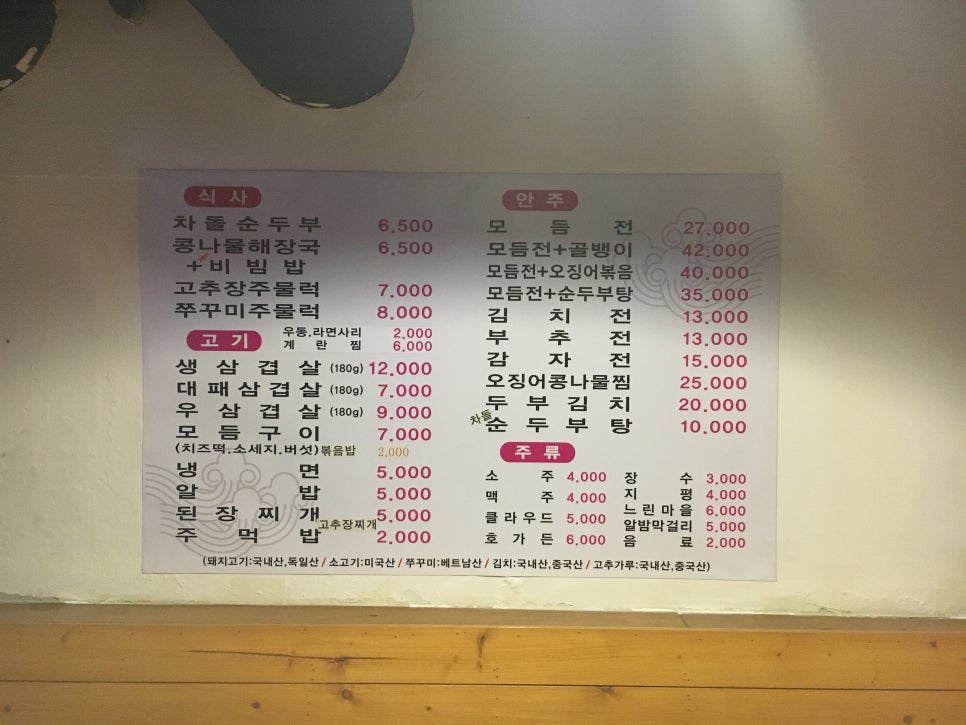 식사
차돌순두부 6.500
콩나물해장국 6.500
+비빔밥
고추장주물럭 7.000
쭈꾸미주물럭 8.000
고기
우동.라면사리 2.000
계란찜 6.000
생삼겹살 (180g) 12.000
대패삼겹살 (180g) 7.000
우삼겹살 (180g) 9.000
모듬구이 7.000
(치즈떡.소세지.버섯) 볶음밥 2,000
냉면 5.000
알밥 5.000
된장찌개 고추장찌개 5.000
주먹밥 2.000
안주
모듬전 27.000
모듬전+골뱅이 42.000
모듬전+오징어볶음 40.000
모듬전+순두부탕 35.000
김치전 13.000
부추전 13.000
감자전 15.000
오징어콩나물찜 25.000
두부김치 20.000
차돌 순두부탕 10.000
주류
소주 4.000 장수 3.000
맥주 4.000 지평 4.000
클라우드 5,000 느린마을 6.000
알밤막걸리 5.000
호가든 6.000 음료 2.000
(돼지고기:국내산,독일산 / 소고기:미국산 / 쭈꾸미:베트남산 / 김치:국내산,중국산 / 고추가루:국내산,중국산)